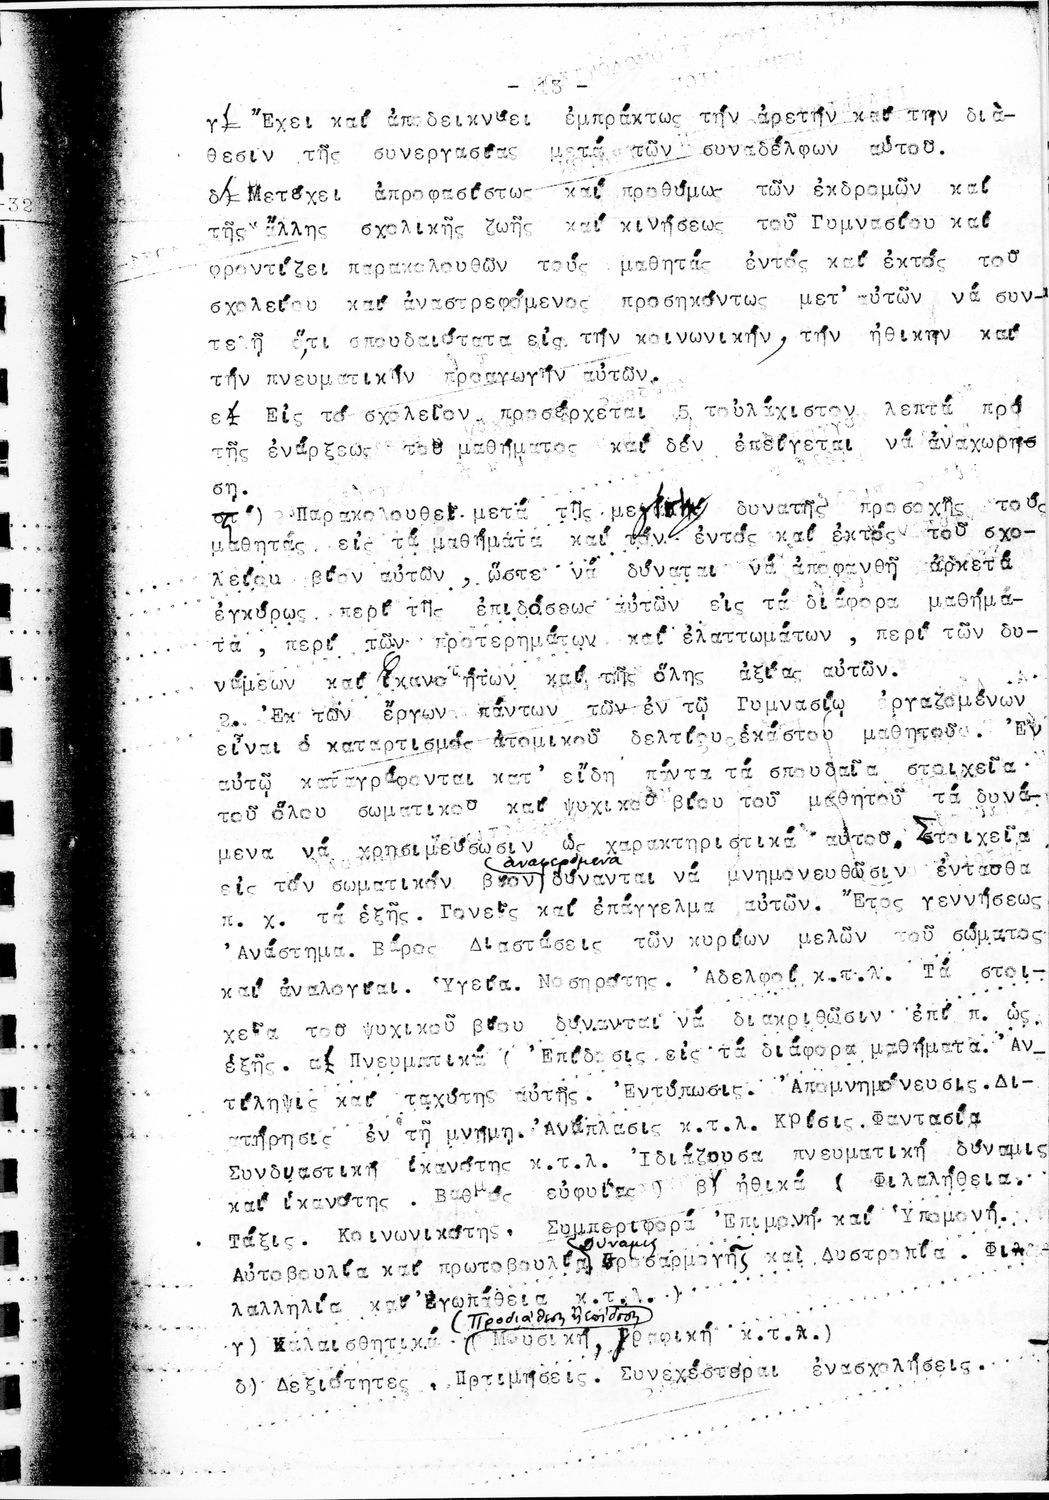 - 13 -
γ) Ἔχει καί ἀποδεικνύει ἐμπράκτως τήν ἀρετήν καί τήν διά-
θεσιν τῆς συνεργασίας μετά τῶν συναδέλφων αὐτοῦ.
δ) Μετέχει ἀπροφασίστως καί προθύμως τῶν ἐκδρομῶν καί
τῆς ἄλλης σχολικῆς ζωῆς καί κινήσεως τοῦ Γυμνασίου καί
φροντίζει παρακολουθῶν τούς μαθητάς ἐντός καί ἐκτός τοῦ
σχολείου καί ἀναστρεφόμενος προσηκόντως μετ' αὐτῶν νά συν-
τελῇ ὅ,τι σπουδαιότατα εἰς τήν κοινωνικήν, τήν ἠθικήν καί
τήν πνευματικήν προαγωγήν αὐτῶν.
ε) Εἰς τό σχολεῖον προσέρχεται 5 τοὐλάχιστον λεπτά πρό
τῆς ἐνάρξεως τοῦ μαθήματος καί δέν ἐπείγεται νά ἀναχωρή
σῃ.
στ) Παρακολουθεῖ μετά τῆς μεγίστης δυνατῆς προσοχῆς τούς
μαθητάς εἰς τά μαθήματα καί τόν ἐντός καί ἐκτός τοῦ σχο-
λείου βίον αὐτῶν, ὥστε νά δύναται νά ἀποφανθῇ ἀρκετά
ἐγκύρως περί τῆς ἐπιδόσεως αὐτῶν εἰς τά διάφορα μαθήμα-
τα, περί τῶν προτερημάτων καί ἐλαττωμάτων, περί τῶν δυ-
νάμεων καί ἱκανοτήτων καί τῆς ὅλης ἀξίας αὐτῶν.
2. Ἐκ τῶν ἔργων πάντων τῶν ἐν τῷ Γυμνασίῳ ἐργαζομένων
εἶναι ὁ καταρτισμός ἀτομικοῦ δελτίου ἑκάστου μαθητοῦ. Ἐν
αὐτῷ καταγράφονται κατ' εἴδη πάντα τά σπουδαῖα στοιχεῖα
τοῦ ὅλου σωματικοῦ καί ψυχικοῦ βίου τοῦ μαθητοῦ τά δυνά-
μενα νά χρησιμεύσωσιν ὡς χαρακτηριστικά αὐτοῦ. Στοιχεῖα
ἀναφερόμενα
εἰς τόν σωματικόν βίον δύνανται νά μνημονευθῶσιν ἐνταῦθα
π. χ. τά ἑξῆς. Γονεῖς καί ἐπάγγελμα αὐτῶν. Ἔτος γεννήσεως
Ἀνάστημα. Βάρος Διαστάσεις τῶν κυρίων μελῶν τοῦ σώματος
καί ἀναλογίαι. Ὑγεία. Νοσηρότης. Ἀδελφοί κ.π.λ. Τά στοι-
χεῖα τοῦ ψυχικοῦ βίου δύνανται νά διακριθῶσιν ἐπί π. ὡς
ἑξῆς. α) Πνευματικά ( Ἐπίδοσις εἰς τά διάφορα μαθήματα. Ἀν_
τίληψις καί ταχύτης αὐτῆς. Ἐντύπωσις. Ἀπομνημόνευσις. Δι-
ατήρησις ἐν τῇ μνήμῃ. Ἀνάπλασις κ.τ.λ. Κρίσις. Φαντασία
Συνδυαστική ἱκανότης κ.τ.λ. Ἰδιάζουσα πνευματική δύναμις
καί ἱκανότης. Βαθμός εὐφυίας) β) ἠθικά ( Φιλαλήθεια.
Τάξις. Κοινωνικότης. Συμπεριφορά Ἐπιμονή καί Ὑπομονή.
δύναμις
Αὐτοβουλία καί πρωτοβουλία προσαρμογῆς καί Δυστροπία. Φιλα
λαλληλία καί Ἐγωπάθεια κ.τ.λ. )
(Προδιάθεση ἤ ἐπίδοση)
γ) Καλαισθητικά ( Μουσική, Γραφική κ.τ.λ.)
δ) Δεξιότητες, Πρτιμήσεις. Συνεχέστεραι ἐνασχολήσεις.